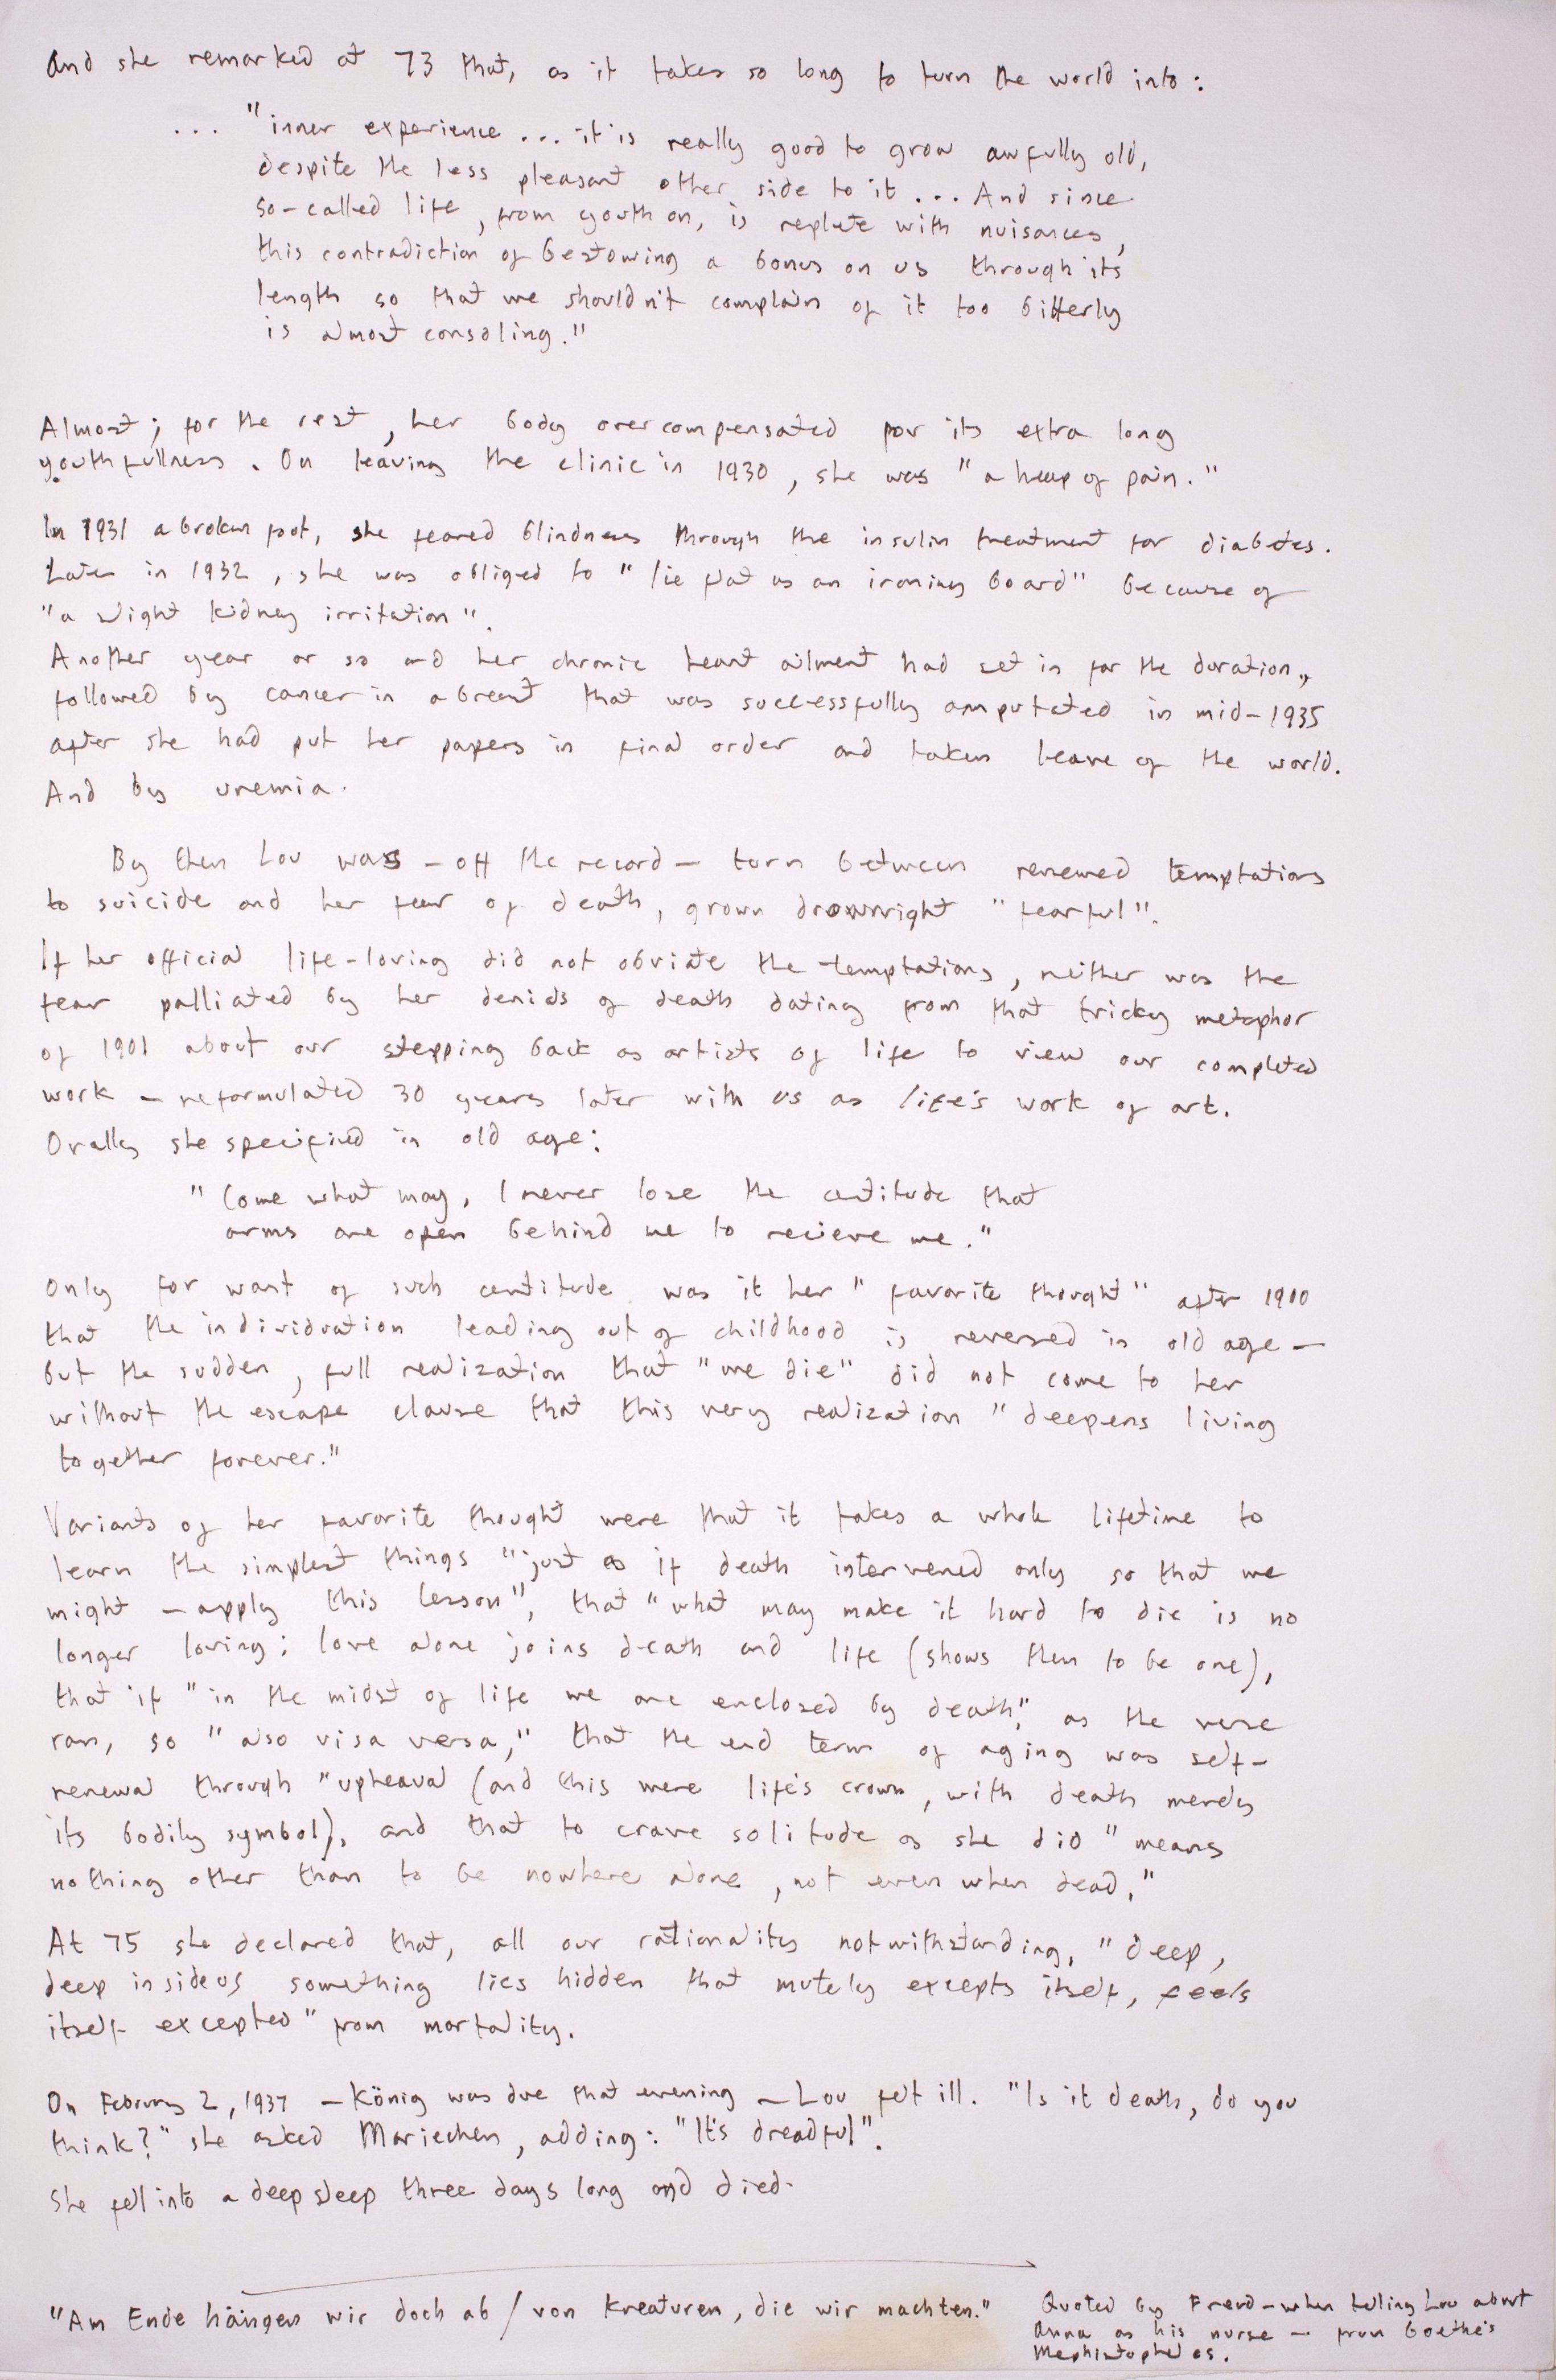 And she remarked at 73 that, as it takes so long to turn the world into :
... "inner experience ... it is really good to grow awfully old,
despite the less pleasant other side to it ... And since
so-called life, from youth on, is replete with nuisances,
this contradiction of bestowing a bonus on us through its
length so that we shouldn't complain of it too bitterly
is almost consoling."
Almost; for the rest, her body overcompensated for its extra long
youthfullness. On leaving the clinic in 1930, she was "a heap of pain."
In 1931 a broken foot, she feared blindness through the insulin treatment for diabetes.
Later in 1932, she was obliged to "lie flat as an ironing board" because of
"a slight kidney irritation".
Another year or so and her chronic heart ailment had set in for the duration,,
followed by cancer in a breast that was successfully amputated in mid-1935
after she had put her papers in final order and taken leave of the world.
And by uremia.
By then Lou was - off the record - torn between renewed temptations
to suicide and her fear of death, grown downright "fearful".
If her official life-loving did not obviate the temptations, neither was the
fear palliated by her denials of death dating from that tricky metaphor
of 1901 about our stepping back as artists of life to view our completed
work - reformulated 30 years later with us as life's work of art.
Orally she specified in old age:
"Come what may, I never lose the certitude that
arms are open behind me to recieve me."
Only for want of such certitude was it her "favorite thought" after 1900
that the individuation leading out of childhood is reversed in old age -
but the sudden, full realization that "we die" did not come to her
without the escape clause that this very realization "deepens living
together forever."
Variants of her favorite thought were that it takes a whole lifetime to
learn the simplest things "just as if death intervened only so that we
might - apply this lesson", that "what may make it hard to die is no
longer loving; love alone joins death and life (shows them to be one),
that if "in the midst of life we are enclosed by death," as the verse
ran, so "also visa versa," that the end term of aging was self-
renewal through "upheaval (and this were life's crown, with death merely
its bodily symbol), and that to crave solitude as she did "means
nothing other than to be nowhere alone, not even when dead."
At 75 she declared that, all our rationality notwithstanding, "deep,
deep inside us something lies hidden that mutely excepts itself, feels
itself excepted" from mortality.
On February 2, 1937 - König was due that evening - Lou felt ill. "Is it death, do you
think?" she asked Mariechen, adding: "It's dreadful".
She fell into a deep sleep three days long and died.
"Am Ende hängen wir doch ab / von Kreaturen, die wir machten."
Quoted by Freud - when telling Lou about
Anna as his nurse - from Goethe's
Mephistopheles.